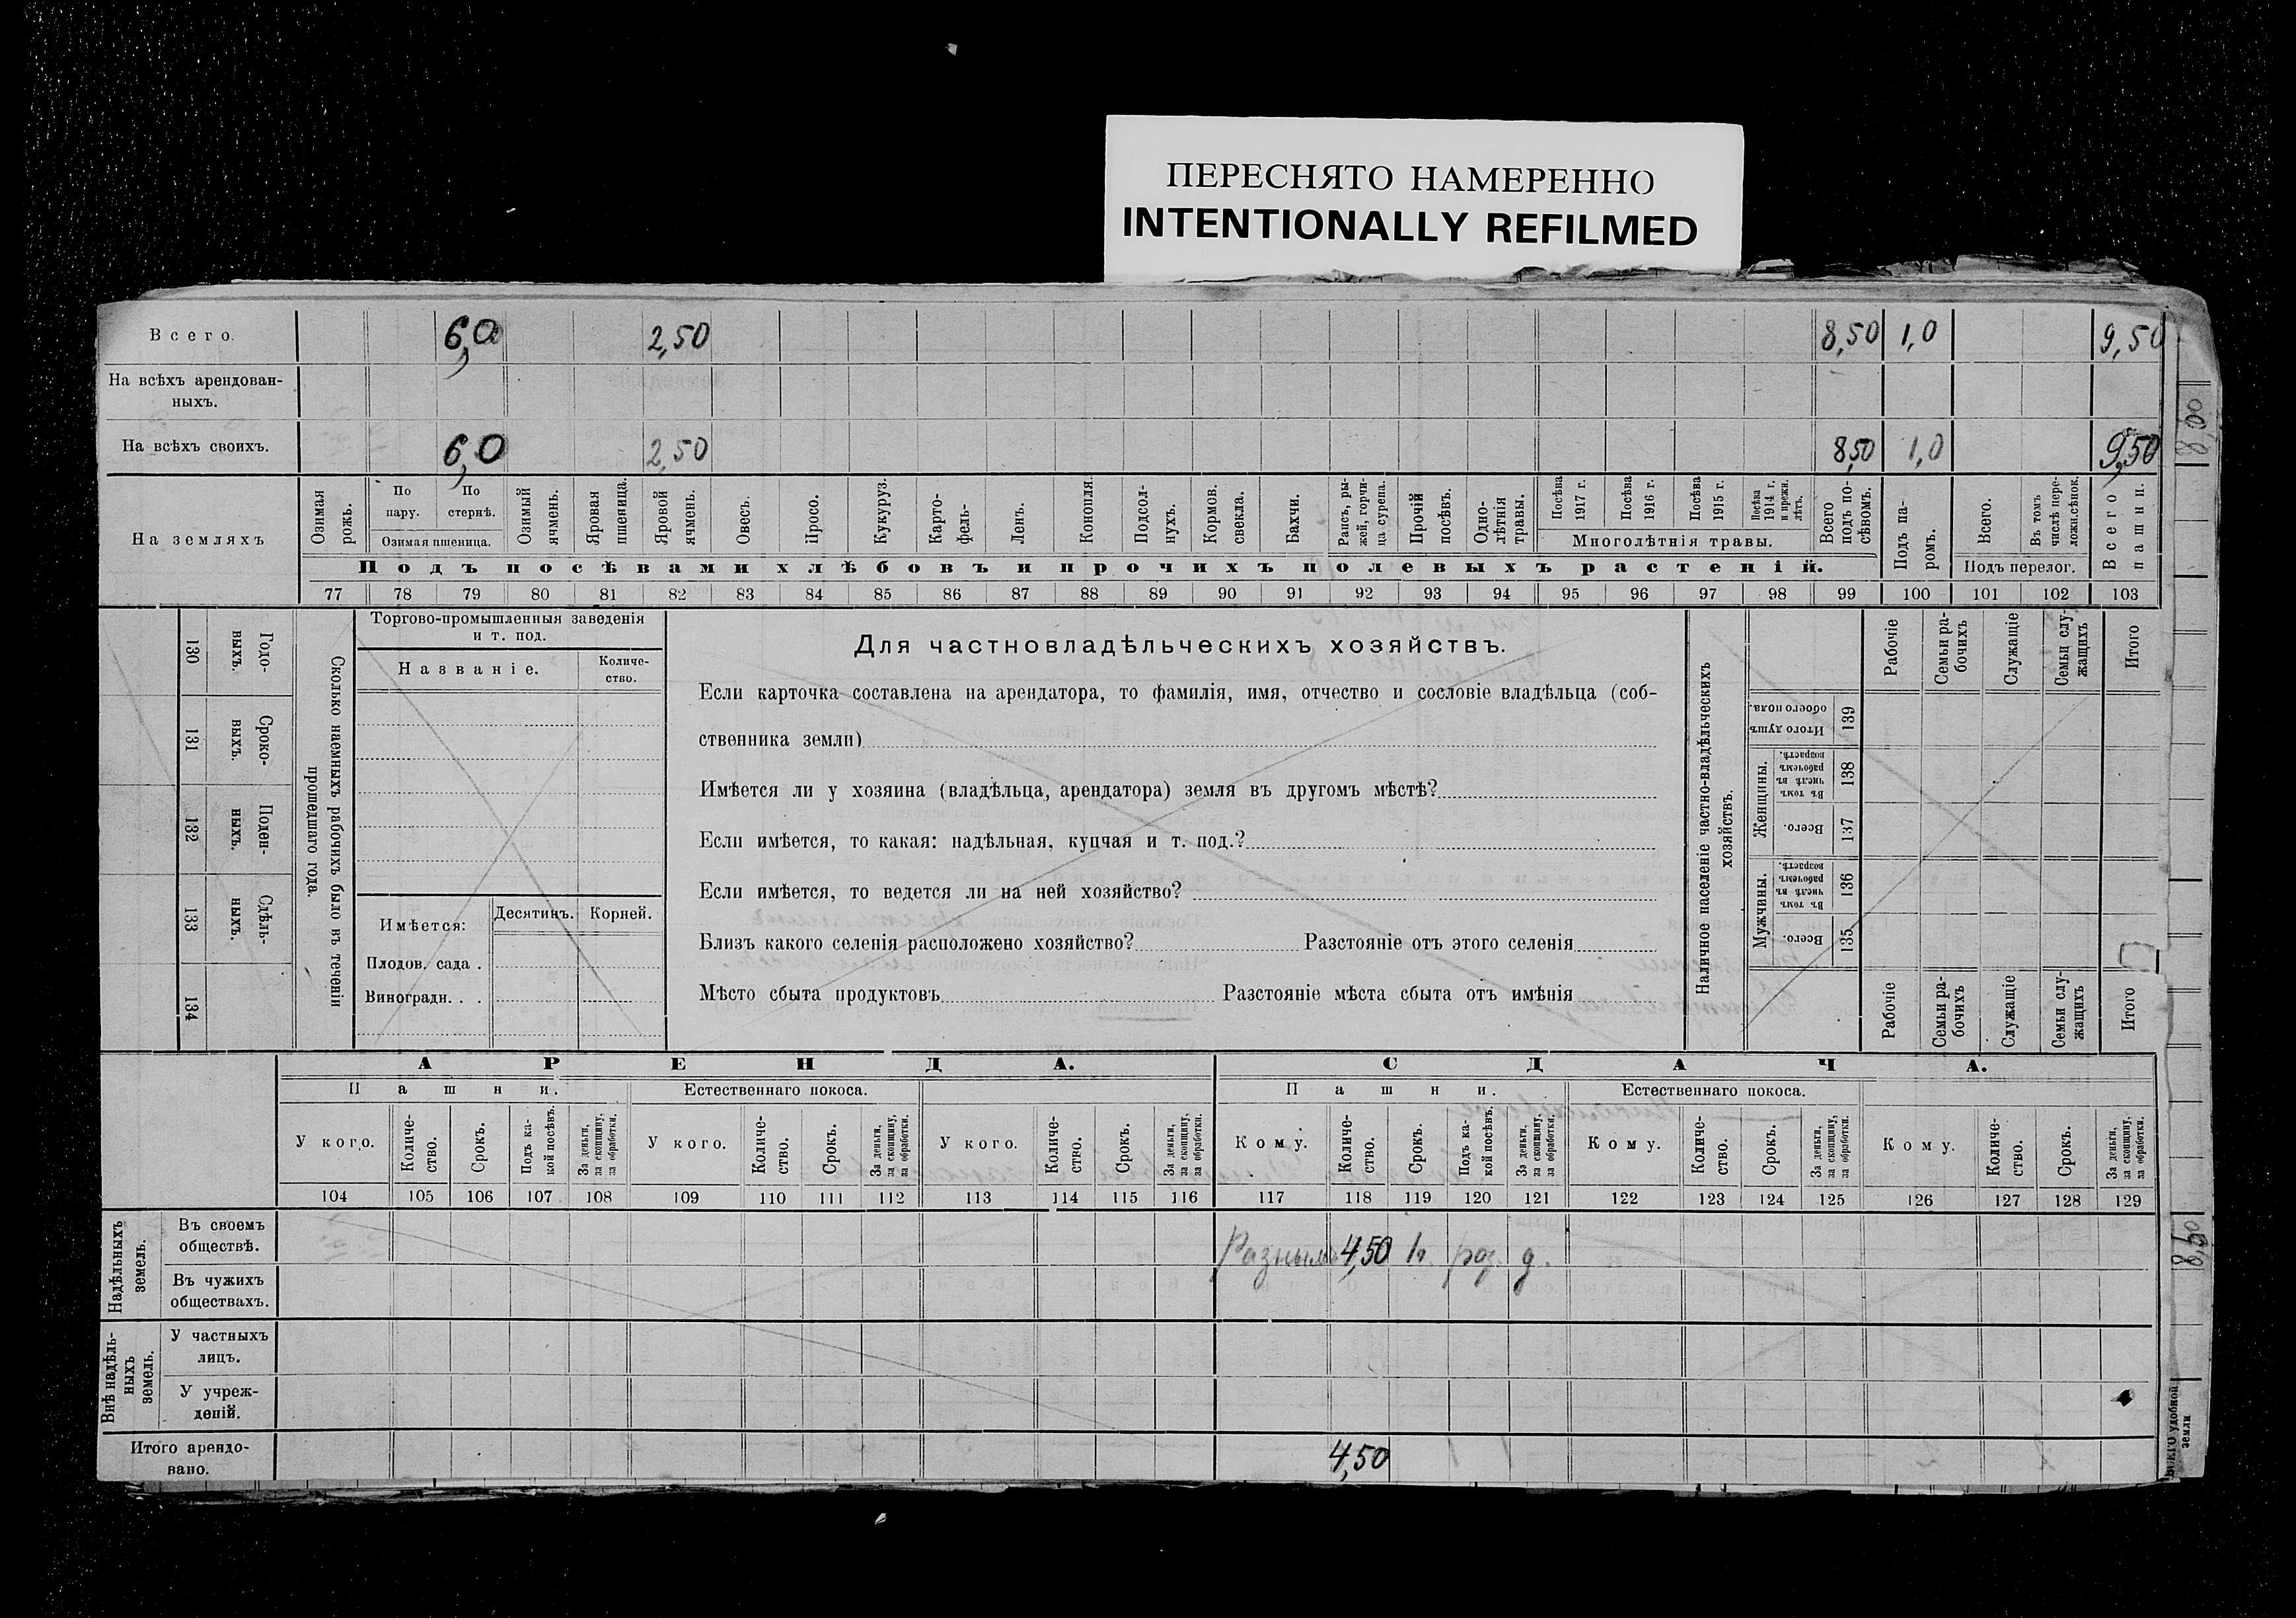 ПЕРЕСНЯТО НАМЕРЕННО
INTENTIONALLY REFILMED
Всего. 6,0 2,50 8,50 1,0 9,50
На всѣхъ арендован-
ныхъ.
На всѣхъ своихъ. 6,0 2,50 8,50 1,0 9,50
На земляхъ
Озимая рожь.
По пару.
По стернѣ.
Озимая пшеница.
Озимый ячмень.
Яровая пшеница.
Яровой ячмень.
Овесъ.
Просо.
Кукуруз.
Карто-
фель-
Ленъ.
Конопля.
Подсол-
нухъ.
Кормов. свекла.
Бахчи.
Рапсъ, ры-
жей, горчи-
ца сурепа.
Прочій посѣвъ.
Одно-
лѣтнія травы.
Посѣва 1917 г.
Посѣва 1916 г.
Посѣва 1915 г.
Посѣва 1914 г. и прежн. лѣтъ.
Многолѣтнія травы.
Всего подъ по-
сѣвомъ.
Подъ па-
ромъ.
Всего.
Въ томъ числѣ пере-
ложн.сѣнок.
Подъ перелог.
Всего пашни.
Подъ посѣвами хлѣбовъ и прочихъ полевыхъ растеній.
77 78 79 80 81 82 83 84 85 86 87 88 89 90 91 92 93 94 95 96 97 98 99 100 101 102 103
130 Годо-
выхъ.
131 Сроко-
выхъ.
132 Поден-
ныхъ.
133 Сдѣль-
ныхъ.
134
Сколько наемныхъ рабочихъ было въ теченіи
прошедшаго года.
Торгово-промышленныя заведенія
и т. под.
Названіе.
Количе-
ство.
Имѣется: Десятинъ. Корней.
Плодов. сада .
Виноградн. . .
Для частновладѣльческихъ хозяйствъ.
Если карточка составлена на арендатора, то фамилія, имя, отчество и сословіе владѣльца (соб-
ственника земли)
Имѣется ли у хозяина (владѣльца, арендатора) земля въ другомъ мѣстѣ?
Если имѣется, то какая: надѣльная, купчая и т. под.?
Если имѣется, то ведется ли на ней хозяйство?
Близъ какого селенія расположено хозяйство? Разстояніе отъ этого селенія
Мѣсто сбыта продуктовъ Разстояніе мѣста сбыта отъ имѣнія
Наличное населеніе частно-владѣльческихъ
хозяйствъ.
Рабочіе
Семьи ра-
бочихъ
Служащіе
Семьи слу-
жащихъ
Итого
Итого душъ обоего пола. 139
Женщины.
Въ томъ числѣ въ рабочемъ возрастѣ. 138
Всего. 137
Мужчины.
Въ томъ числѣ въ рабочемъ возрастѣ. 136
Всего. 135
Рабочіе
Семьи ра-
бочихъ
Служащіе
Семьи слу-
жащихъ
Итого
АРЕНДА. СДАЧА.
Пашни. Естественнаго покоса. Пашни. Естественнаго покоса.
У кого.
Количе-
ство.
Срокъ.
Подъ ка-
кой посѣвъ.
За деньги, за скопщину, за обработки.
У кого.
Количе-
ство.
Срокъ.
За деньги, за скопщину, за обработки.
У кого.
Количе-
ство.
Срокъ.
За деньги, за скопщину, за обработки.
Кому.
Количе-
ство.
Срокъ.
Подъ ка-
кой посѣвъ.
За деньги, за скопщину, за обработки.
Кому.
Количе-
ство.
Срокъ.
За деньги, за скопщину, за обработки.
Кому.
Количе-
ство.
Срокъ.
За деньги, за скопщину, за обработки.
104 105 106 107 108 109 110 111 112 113 114 115 116 117 118 119 120 121 122 123 124 125 126 127 128 129
Надѣльныхъ земель.
Въ своемъ
обществѣ.
Разнымъ 4,50 1г. раз. д.
Въ чужихъ
обществахъ.
Внѣ надѣль-
ныхъ земель.
У частныхъ
лицъ.
У учреж-
деній.
Итого арендо-
вано.
4,50
8,00
8,50
Всего удобной земли